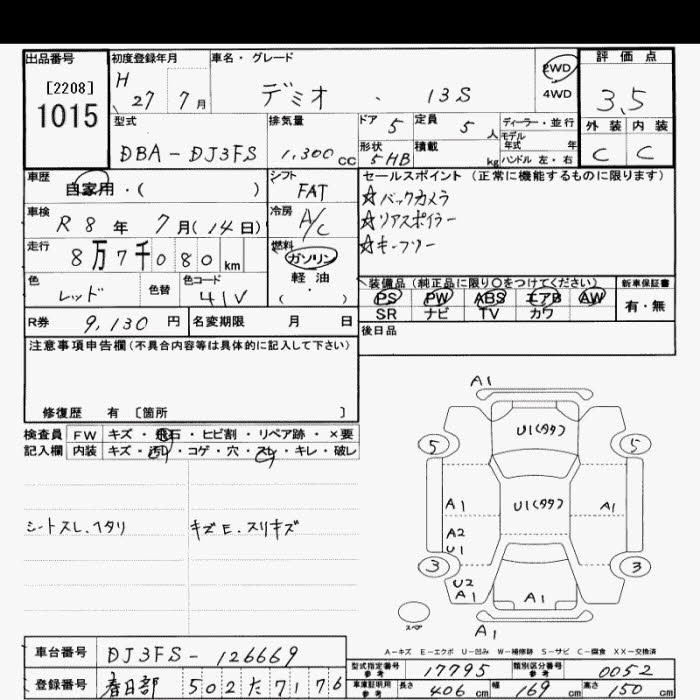 出品番号
[2208]
1015
初度登録年月
H 27 7 月
車名・グレード
デミオ ・ 13S
2WD
4WD
評価点
3.5
外装 内装
C C
型式
DBA-DJ3FS
排気量
1,300 cc
ドア 5
形状 5HB
定員 5 人
積載 kg
ディーラー・並行
モデル年式 年
ハンドル 左・右
車歴
自家用・( )
車検
R 8 年 7 月(14日)
走行
8万7千080 km
色
レッド
色替
色コード
41V
シフト
FAT
冷房
A/C
燃料
ガソリン
軽油
( ・ )
セールスポイント (正常に機能するものに限ります)
☆バックカメラ
☆リアスポイラー
☆キーフリー
装備品(純正品に限り○をつけてください)
PS PW ABS エアB AW
SR ナビ TV カワ
新車保証書
有・無
後日品
R券 9,130 円
名変期限 月 日
注意事項申告欄(不具合内容等は具体的に記入して下さい)
修復歴 有 [箇所 ]
検査員記入欄
FW キズ・飛石・ヒビ割・リペア跡・×要
内装 キズ・汚レ・コゲ・穴・スレ・キレ・破レ
シートスレ.ヘタリ
キズE.スリキズ
A1
U1(タタ)
5 5
U1(タタ)
A1 A1
A2
U1
3 3
U2
A1
A1
スペア
A1
A-キズ E-エクボ U-凹み W-補修跡 S-サビ C-腐食 XX-交換済
車台番号 DJ3FS-126669
登録番号 春日部 502 た 7176
型式指定番号 参考 17795
類別区分番号 参考 0052
車庫証明用 参考 長さ 406 cm 幅 169 cm 高さ 150 cm